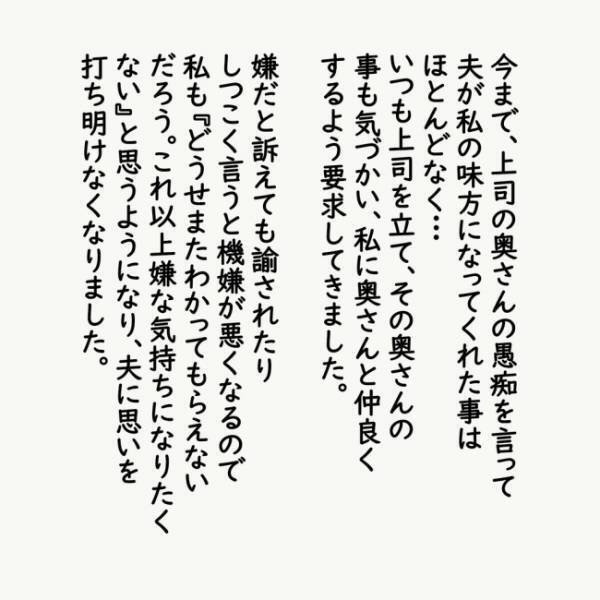 今まで、上司の奥さんの愚痴を言って
夫が私の味方になってくれた事は
ほとんどなく…
いつも上司を立て、その奥さんの
事も気づかい、私に奥さんと仲良く
するよう要求してきました。
嫌だと訴えても諭されたり
しつこく言うと機嫌が悪くなるので
私も『どうせまたわかってもらえない
だろう。これ以上嫌な気持ちになりたく
ない』と思うようになり、夫に思いを
打ち明けなくなりました。